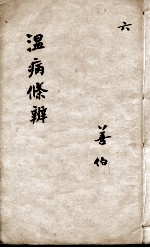 六
善伯
溫病條辨